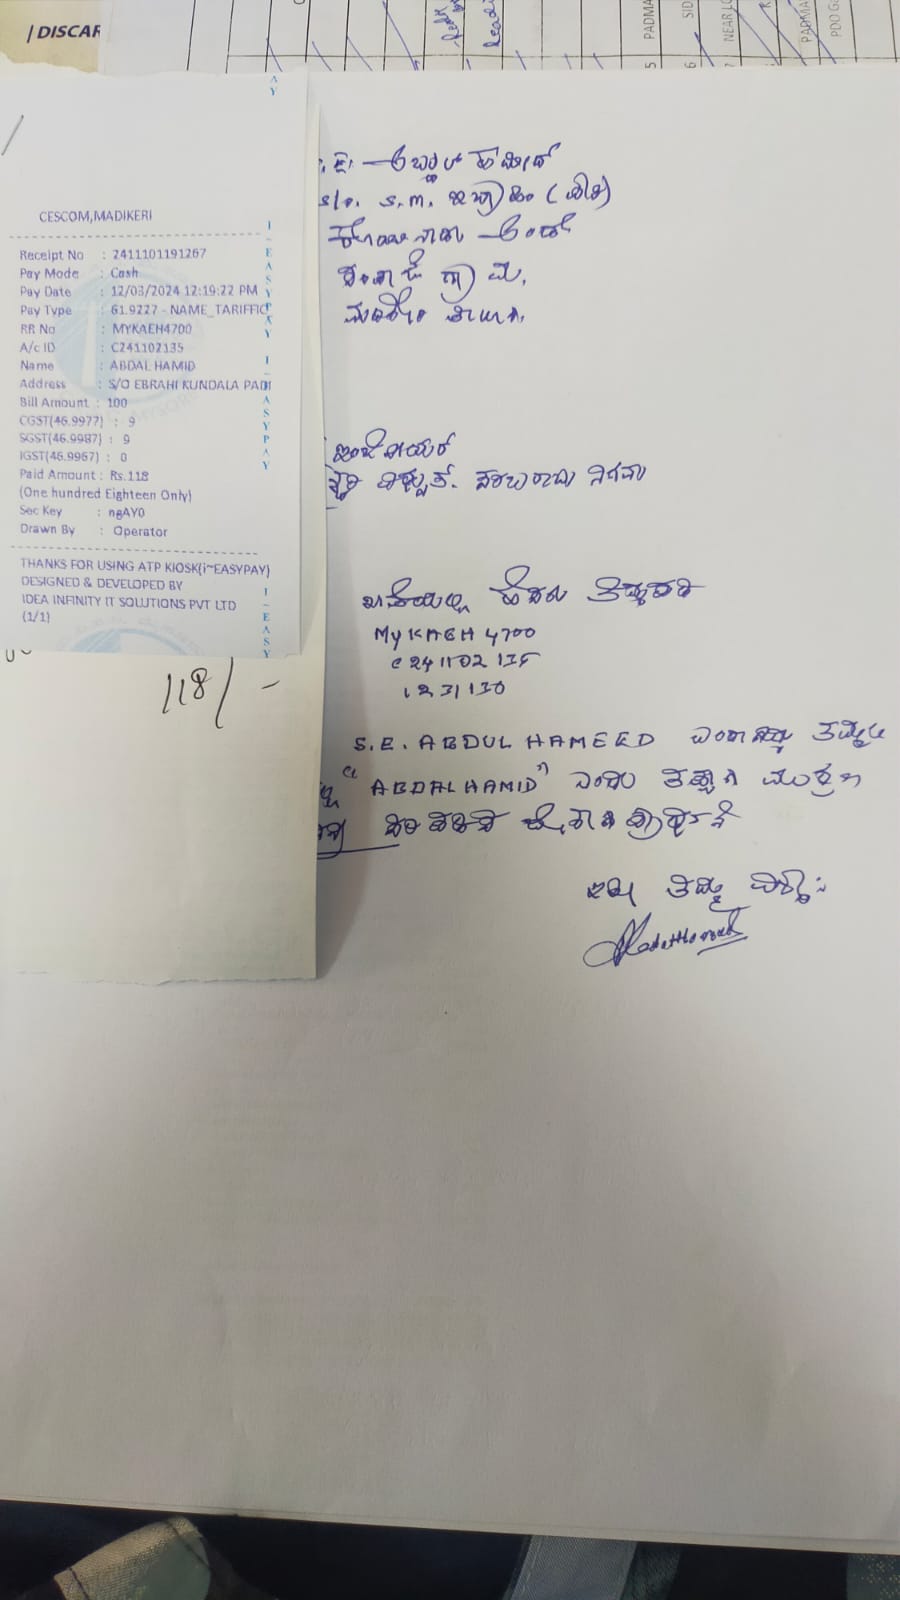 / DISCAR
PADMA
SID
NEAR LO
PADMA
PDO Ga
CESCOM,MADIKERI
Receipt No : 2411101191267
Pay Mode : Cash
Pay Date : 12/03/2024 12:19:22 PM
Pay Type : 61.9227 - NAME_TARIFFIC
RR No : MYKAEH4700
A/c ID : C241102135
Name : ABDAL HAMID
Address : S/O EBRAHI KUNDALA PADI
Bill Amount : 100
CGST(46.9977) : 9
SGST(46.9987) : 9
IGST(46.9967) : 0
Paid Amount : Rs.118
(One hundred Eighteen Only)
Sec Key : ngAY0
Drawn By : Operator
THANKS FOR USING ATP KIOSK(i~EASYPAY)
DESIGNED & DEVELOPED BY
IDEA INFINITY IT SOLUTIONS PVT LTD
(1/1)
118/-
.ಇ. ಅಬ್ದುಲ್ ಹಮೀದ್
S/o. S.M. ಇಬ್ರಾಹಿಂ
ಅಂಚೆ
ಗ್ರಾಮ,
ಇಂಜಿನಿಯರ್
ವಿದ್ಯುತ್. ಸರಬರಾಜು ನಿಗಮ
ಹೆಸರು ತಿದ್ದುಪಡಿ
MYKAEH 4700
C241102135
1231130
S.E. ABDUL HAMEED
"ABDAL HAMID" ಎಂದು ತಪ್ಪಾಗಿ
ಸರಿಪಡಿಸಿ
ಇತಿ ತಮ್ಮ ವಿಶ್ವಾಸಿ